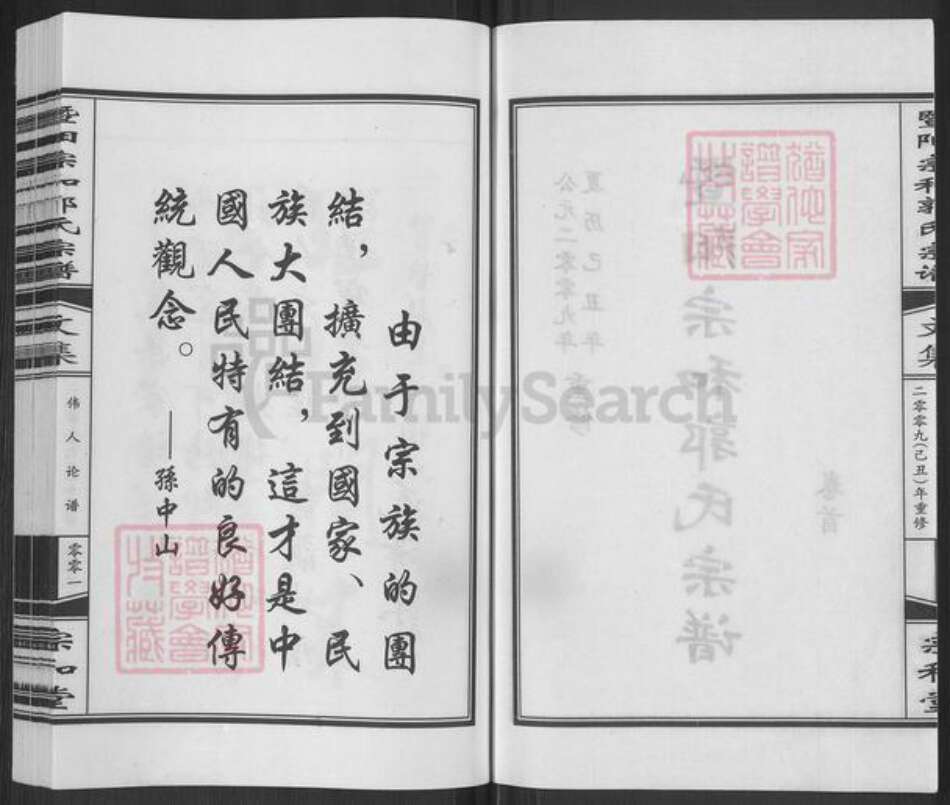 暨陽宗和郭氏宗谱
文集
二零零九(己丑)年重修
宗和堂
暨陽宗和郭氏宗谱
卷首
夏历己丑年
公元二零零九年 重修
由于宗族的團
結，擴充到國家、民
族大團結，這才是中
國人民特有的良好傳
統觀念。
——孫中山
暨陽宗和郭氏宗譜
文集
伟人论谱
零零一
宗和堂
譜學會
收藏
FamilySearch